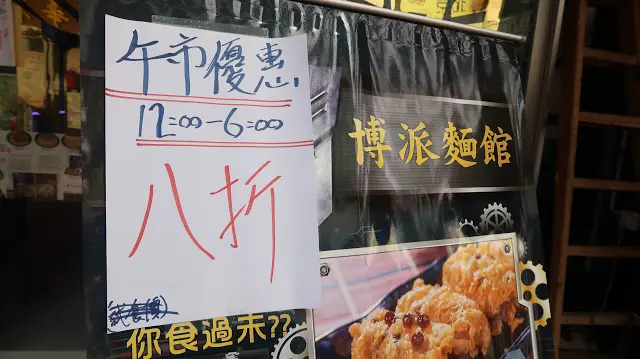 午市優惠
12:00-6:00
八折
博派麵館
你食過未??